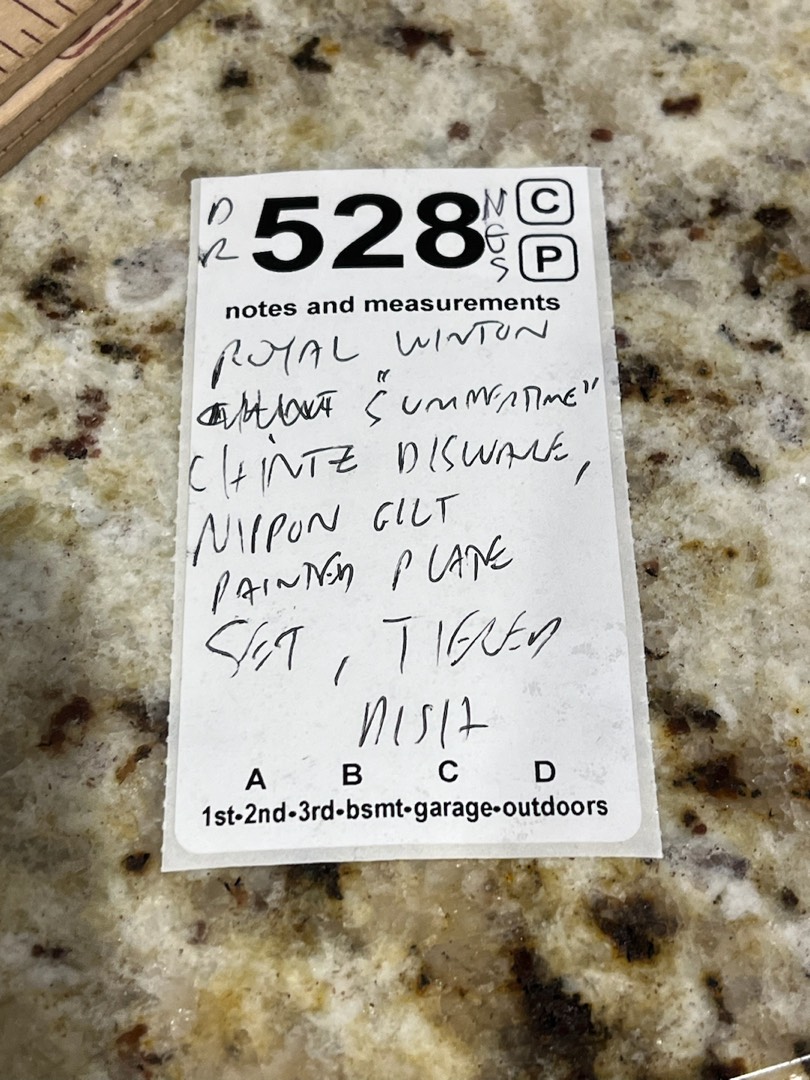 D R 528 N G S C P
notes and measurements
ROYAL WINTON
"SUMMERTIME"
CHINTZ DISWARE,
NIPPON GILT
PAINTED PLATE
SET, TIERED
DISH
A B C D
1st•2nd•3rd•bsmt•garage•outdoors